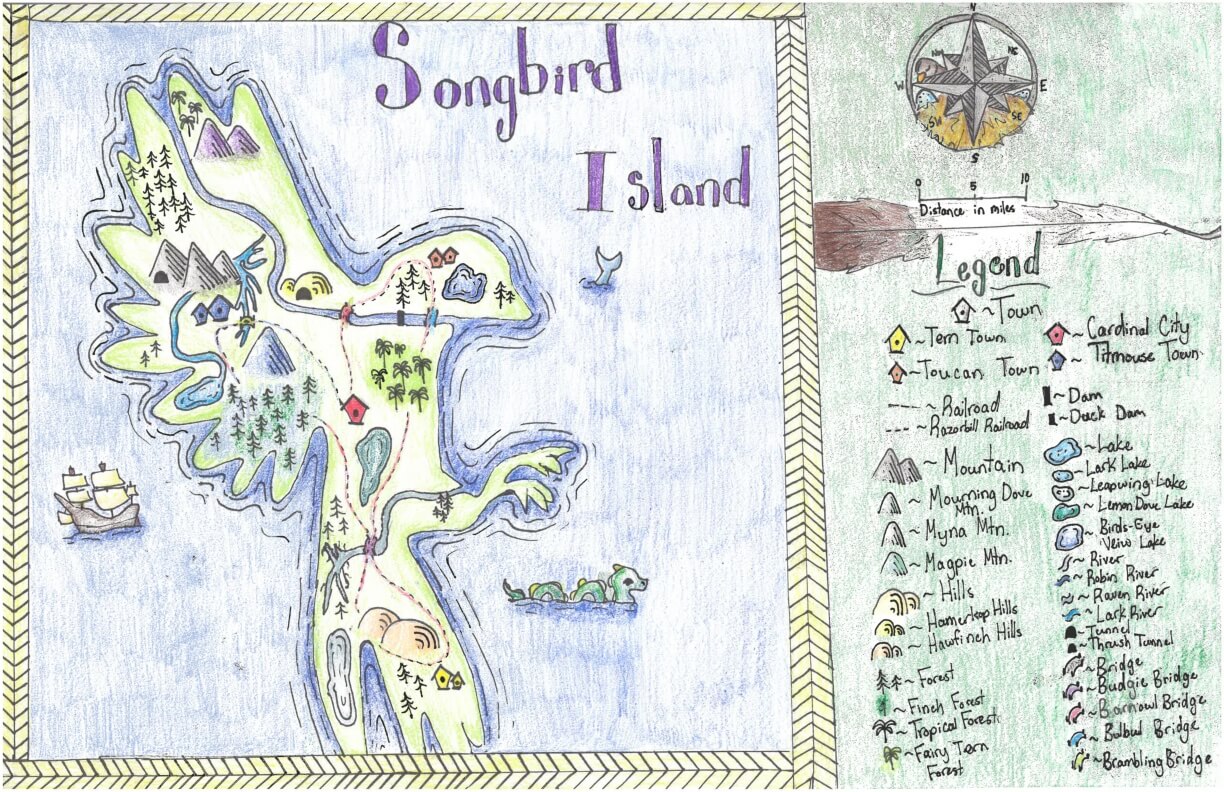 Songbird
Island
N
NW
NE
W
E
SW
SE
S
0 5 10
Distance in miles
Legend
~Town
~Tern Town
~Cardinal City
~Toucan Town
~Titmouse Town
~Railroad
~Dam
~Razorbill Railroad
~Duck Dam
~Mountain
~Lake
~Lark Lake
~Mourning Dove
Mtn.
~Leapwing Lake
~Lemon Dove Lake
~Myna Mtn.
~Birds-Eye
Veiw Lake
~Magpie Mtn.
~River
~Robin River
~Hills
~Raven River
~Hamerkop Hills
~Lark River
~Hawfinch Hills
~Tunnel
~Thrush Tunnel
~Forest
~Bridge
~Budgie Bridge
~Finch Forest
~Barnowl Bridge
~Tropical Forest
~Bulbul Bridge
~Fairy Tern
Forest
~Brambling Bridge